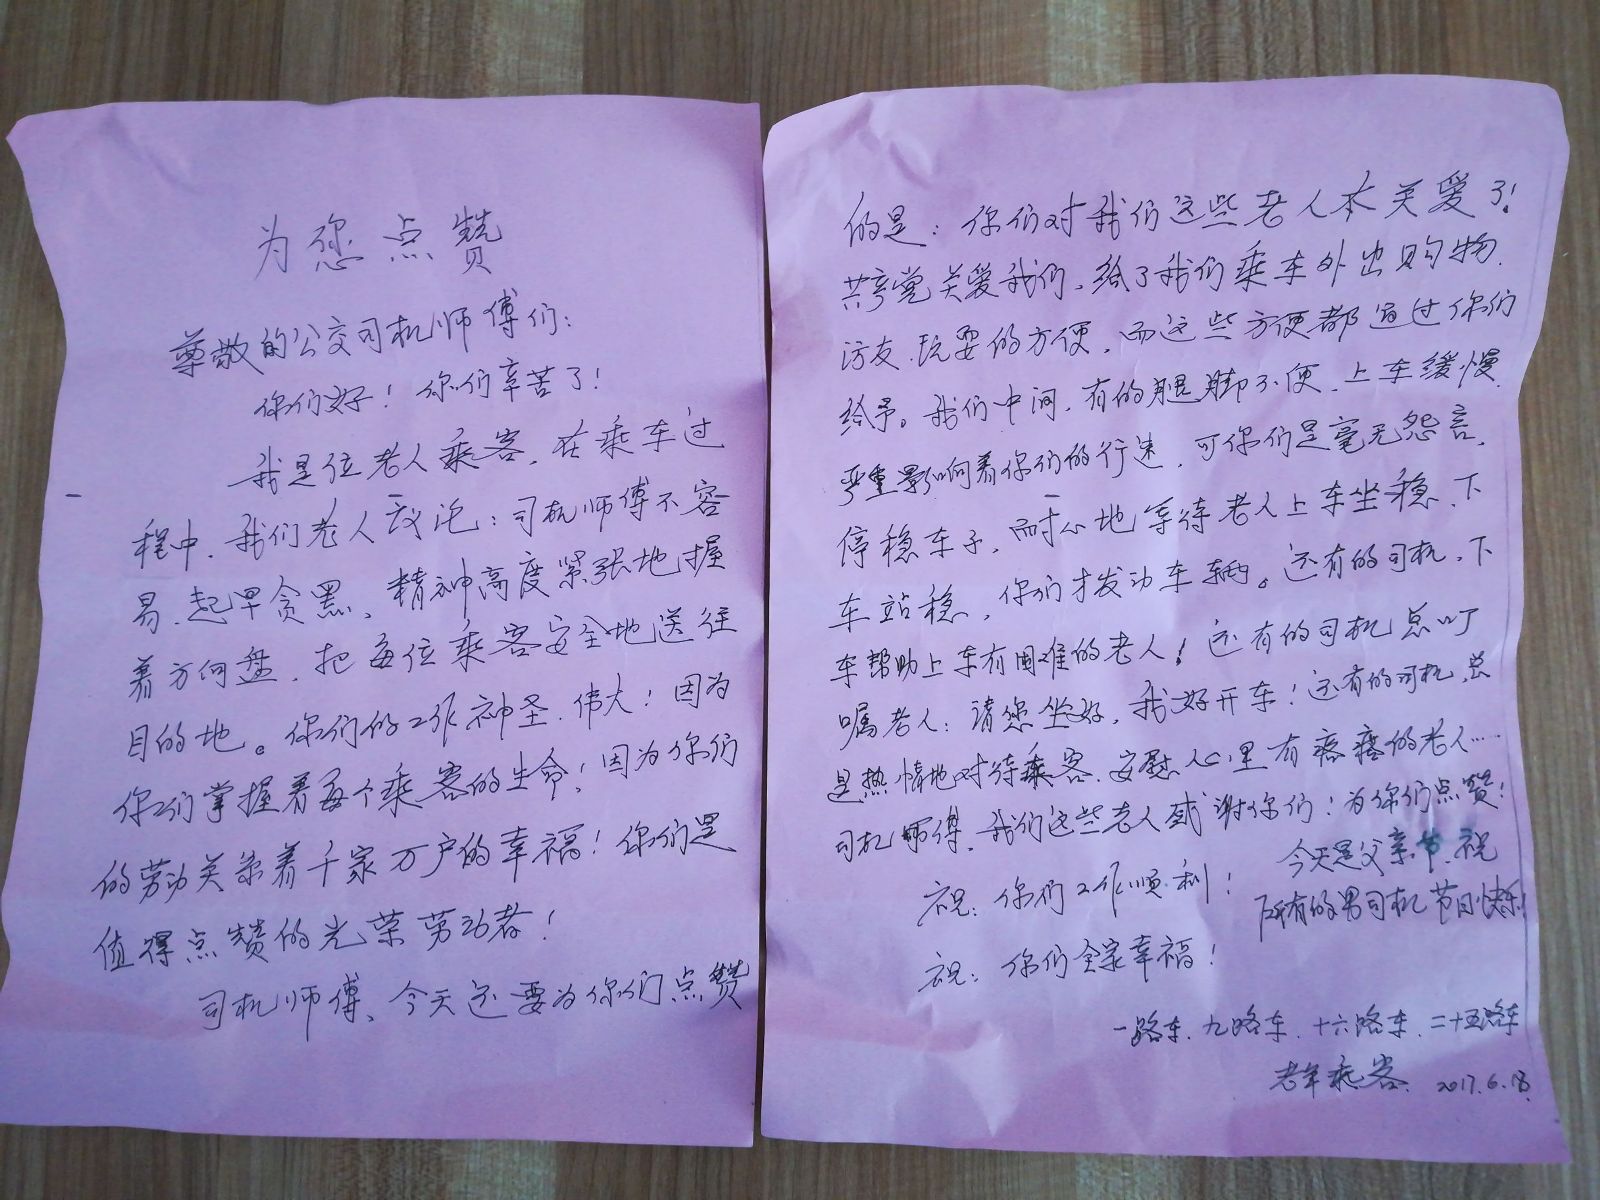 为您点赞
尊敬的公交司机师傅们：
你们好！你们辛苦了！
我是位老人乘客，在乘车过
程中，我们老人议论：司机师傅不容
易，起早贪黑，精神高度紧张地握
着方向盘，把每位乘客安全地送往
目的地。你们的工作神圣、伟大！因为
你们掌握着每个乘客的生命！因为你们
的劳动关系着千家万户的幸福！你们是
值得点赞的光荣劳动者！
司机师傅，今天还要为你们点赞
的是：你们对我们这些老人太关爱了！
共产党关爱我们，给了我们乘车外出购物、
访友、玩耍的方便，而这些方便都通过你们
给予。我们中间，有的腿脚不便，上车缓慢，
严重影响着你们的行速，可你们是毫无怨言，
停稳车子，耐心地等待老人上车坐稳、下
车站稳，你们才发动车辆。还有的司机，下
车帮助上车有困难的老人！还有的司机总叮
嘱老人：请您坐好，我好开车！还有的司机，总
是热情地对待乘客，安慰心里有疼痛的老人……
司机师傅，我们这些老人感谢你们！为你们点赞！
祝：你们工作顺利！
祝：你们全家幸福！
今天是父亲节，祝
所有的男司机节日快乐！
一路车、九路车、十六路车、二十五路车
老年乘客 2017.6.18